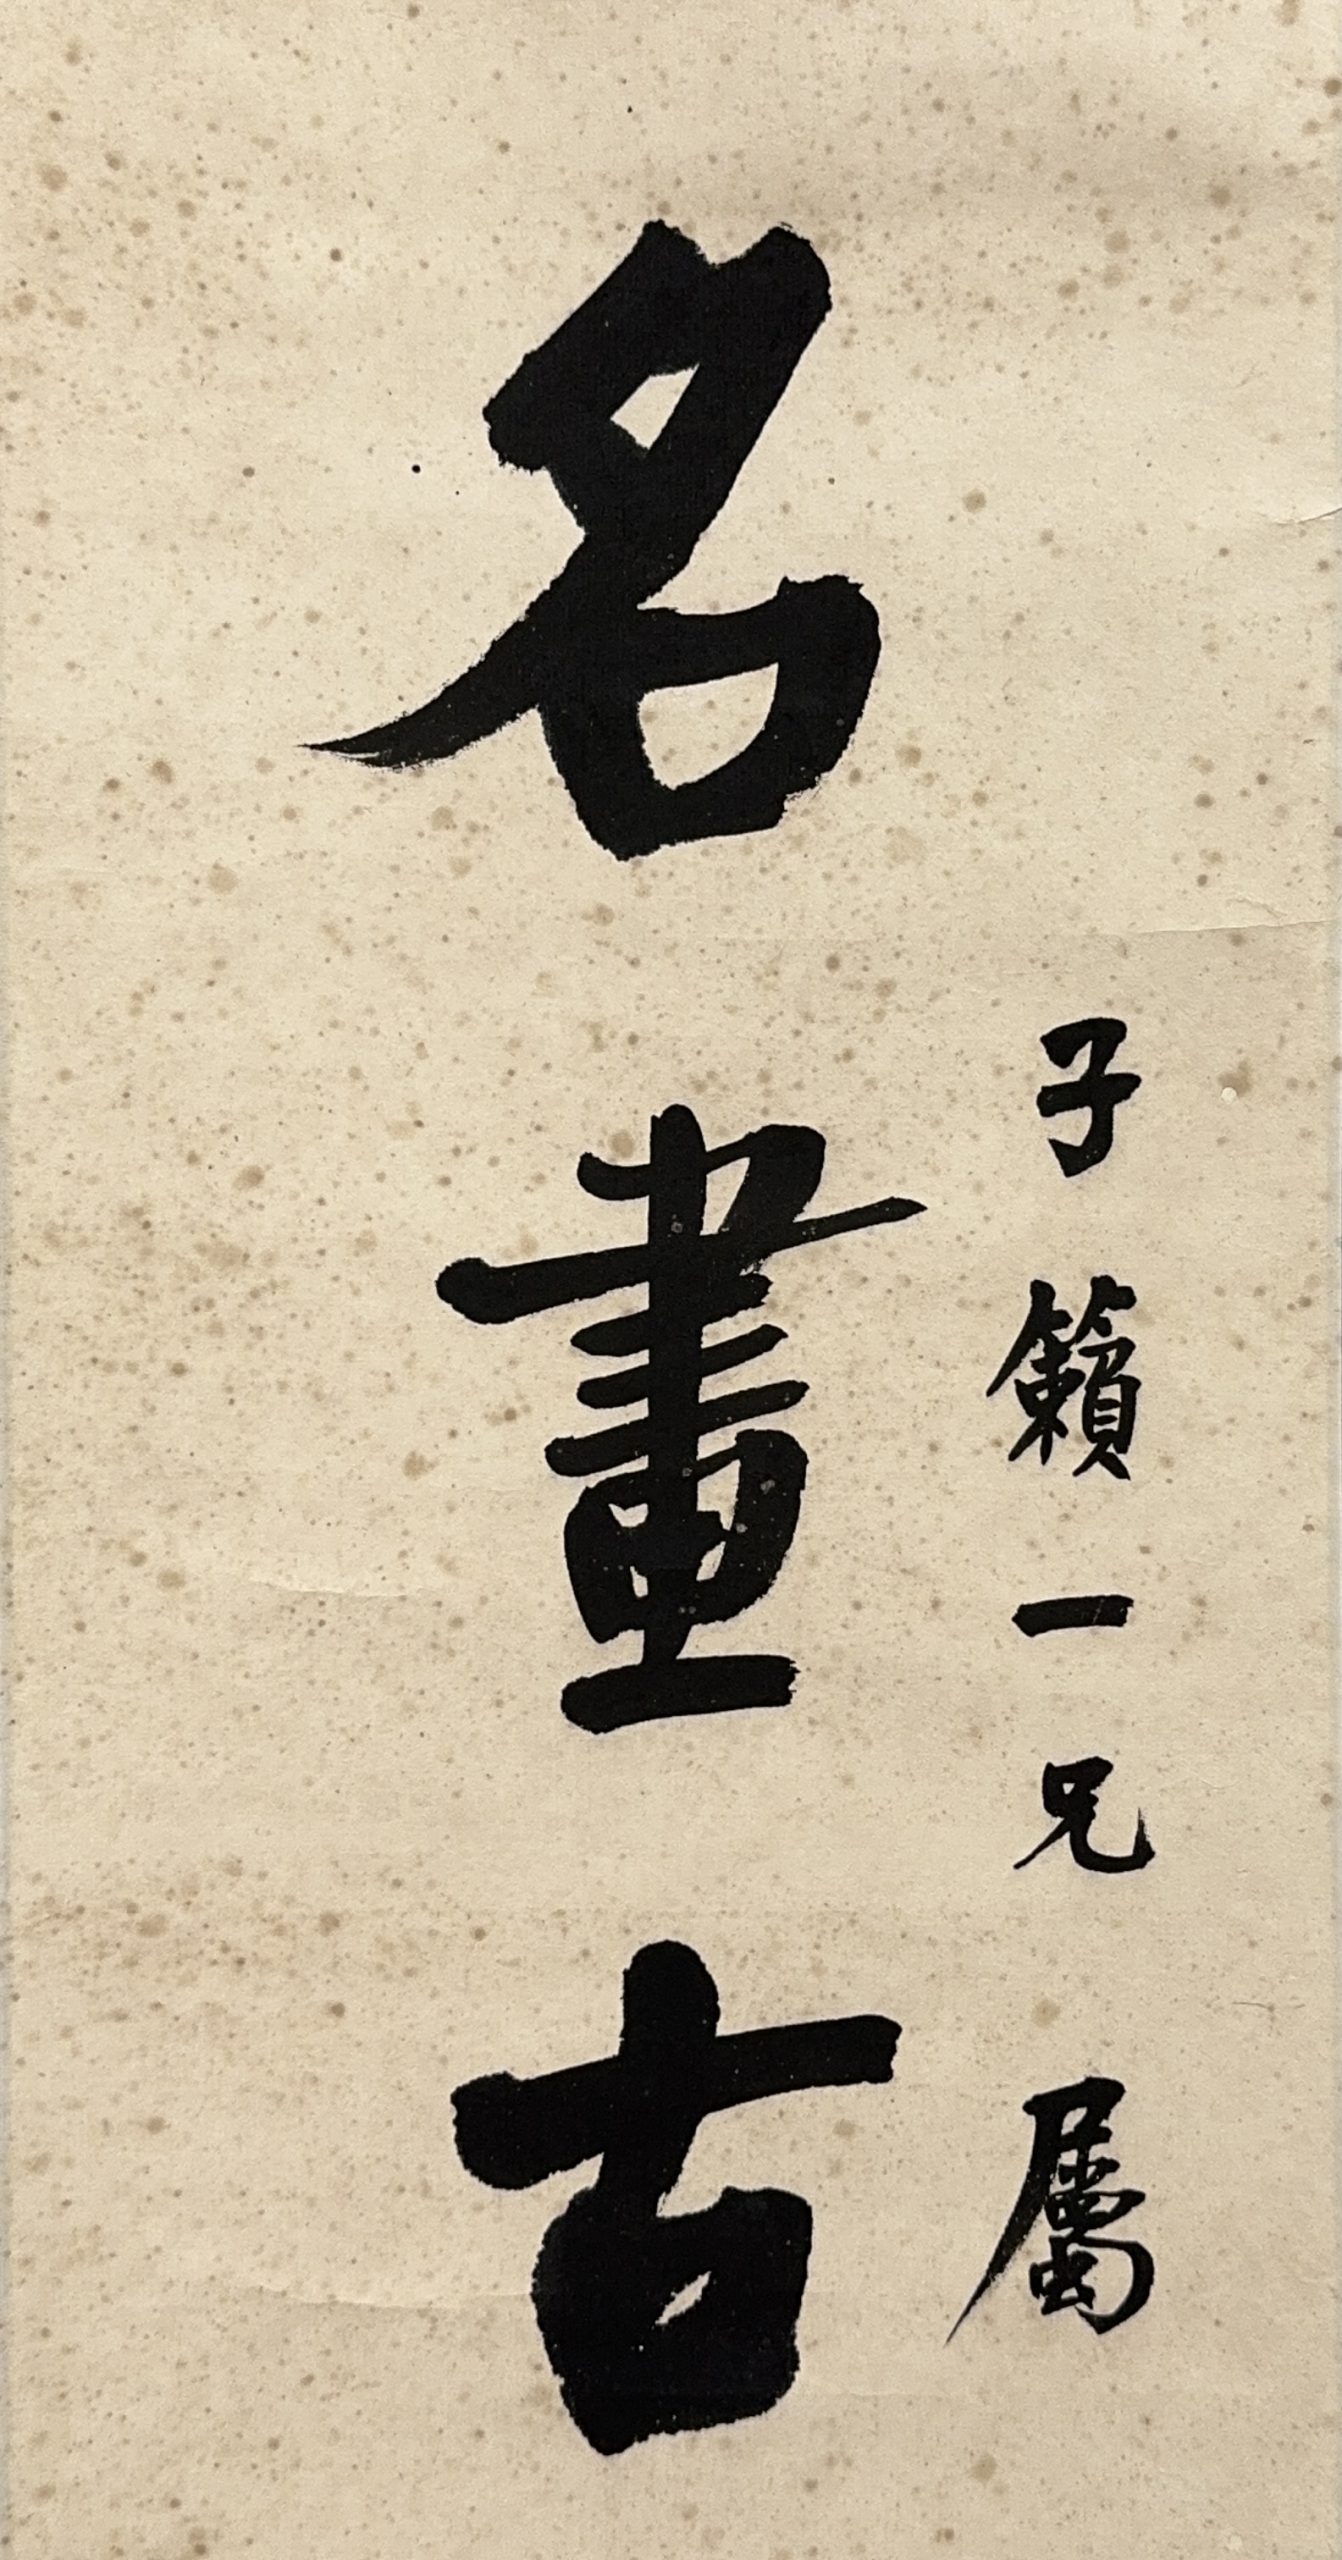 子籟一兄屬
名畫古